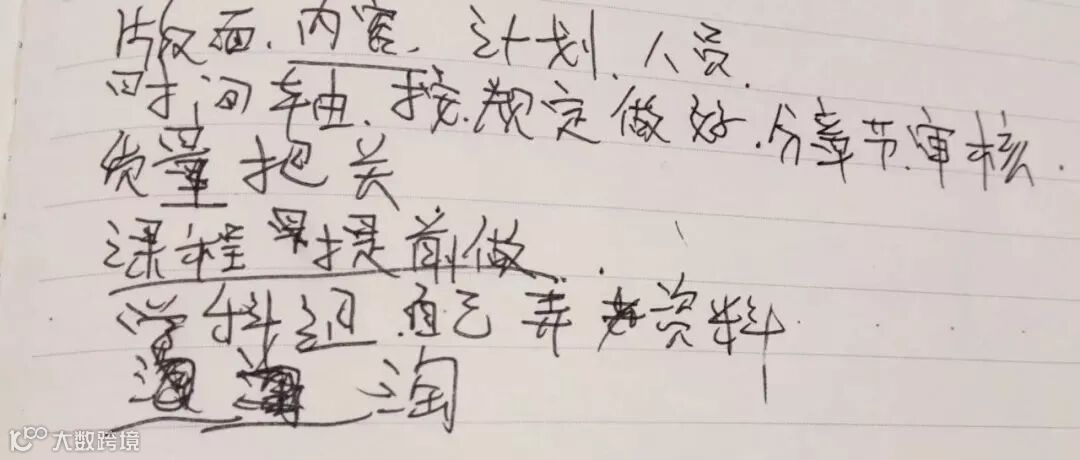 版面、内容、计划、人员、
时间轴、按规定做好、分章节审核.
质量把关
课程提前做
学科组自己弄资料
淘
大数跨境